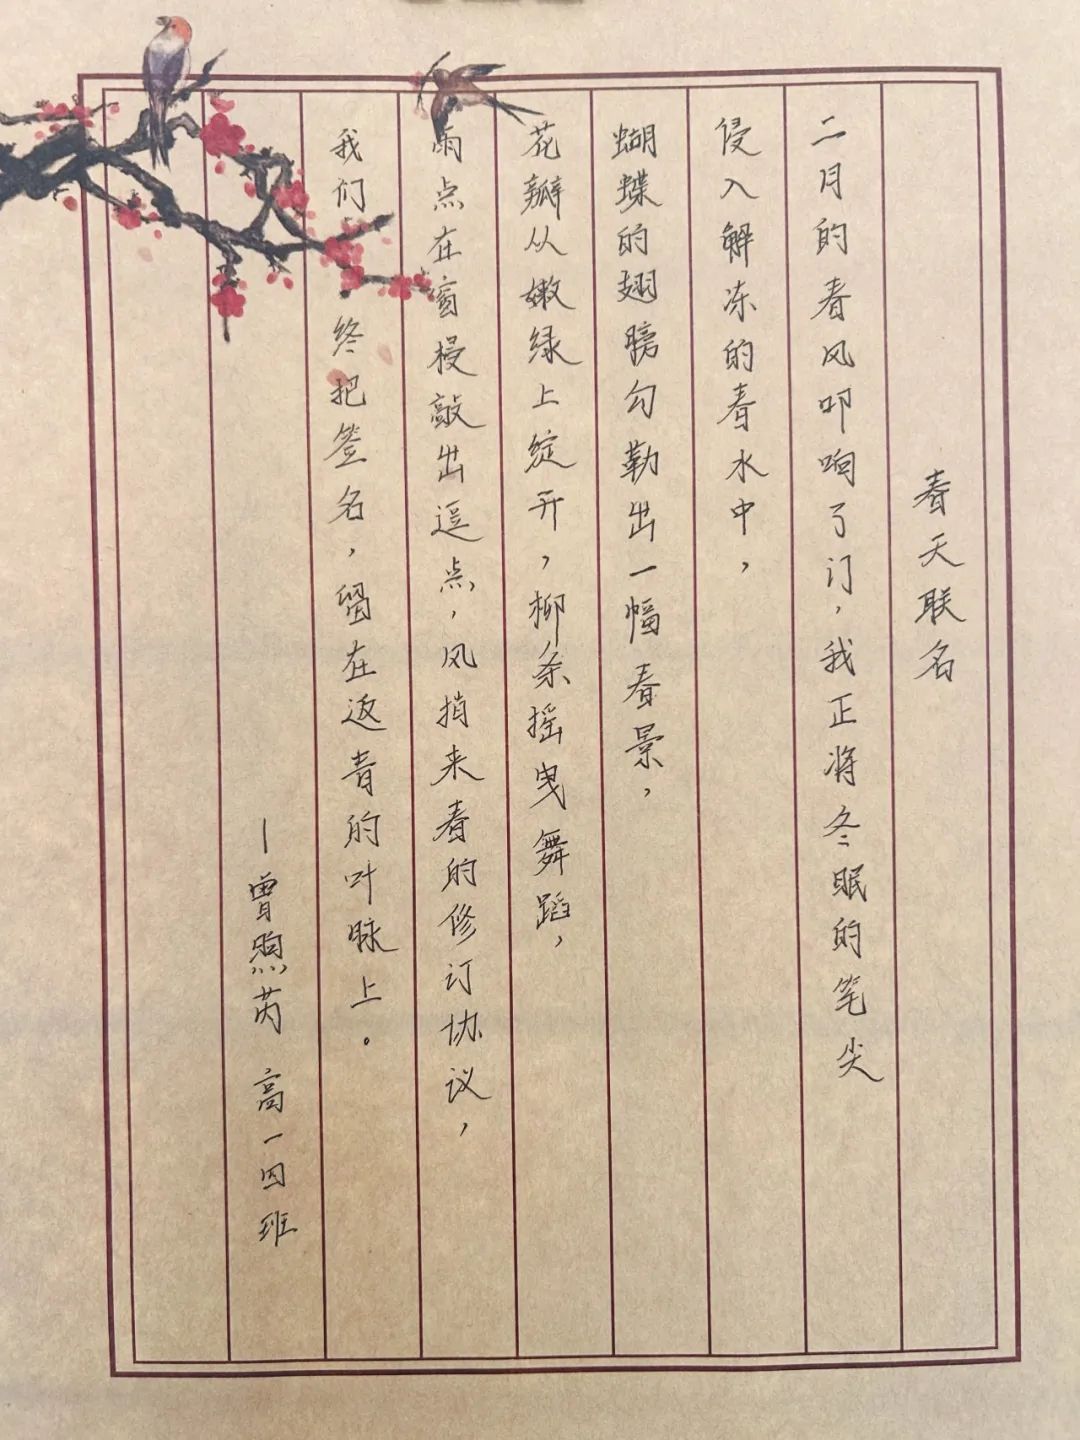 春天联名
二月的春风叩响了门，我正将冬眠的笔尖
侵入解冻的春水中，
蝴蝶的翅膀勾勒出一幅春景，
花瓣从嫩绿上绽开，柳条摇曳舞蹈，
雨点在窗棂敲出逗点，风捎来春的修订协议，
我们终把签名，留在返青的叶脉上。
—曾煦芮 高一四班